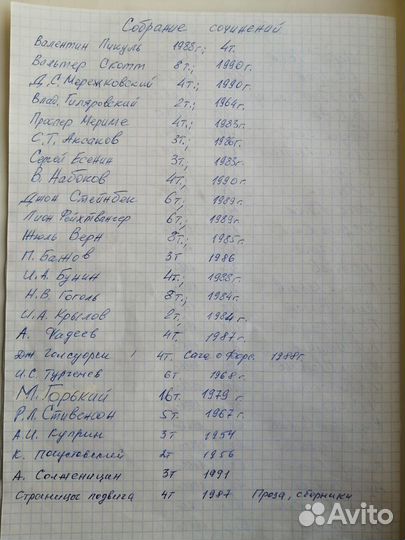 Собрание сочинений
Валентин Пикуль 1988г.; 4т.
Вальтер Скотт 8т.; 1990г.
Д.С. Мережковский 4т.; 1990г.
Влад. Гиляровский 2т.; 1964г.
Проспер Мериме 4т.; 1983г.
С.Т. Аксаков 3т.; 1986г.
Сергей Есенин 3т.; 1983г.
В. Набоков 4т.; 1990г.
Джон Стейнбек 6т.; 1989г.
Лион Фейхтвангер 6т.; 1989г.
Жюль Верн 8т.; 1985г.
П. Бажов 3т 1986
И.А. Бунин 4т.; 1988г.
Н.В. Гоголь 8т.; 1984г.
И.А. Крылов 2т.; 1984г.
А. Фадеев 4т. 1987г.
Дж Голсуорси 4т. Сага о Форс. 1988г.
И.С. Тургенев 6т 1968г.
М. Горький 16т 1979г.
Р.Л. Стивенсон 5т. 1967г.
А.И. Куприн 3т 1954
К. Паустовский 2т 1956
А. Солженицин 3т 1991
Страницы подвига 4т 1987 Проза, сборники
Avito